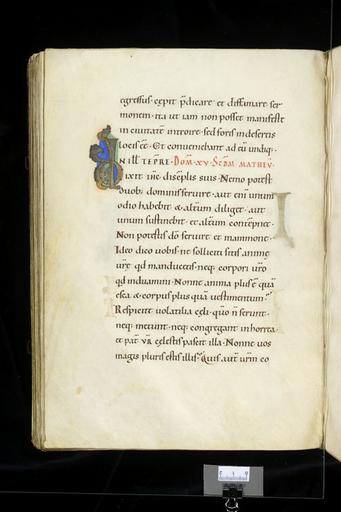 egressus cępit p̄dicare et diffamare ser
monem· ita ut iam non posset manifeste
in ciuitatē introire· sed foris in desertis
locis eē· Et conueniebant ad eū undiq;·
N ILL TEPRE· DOM· XV· SCDM MATHEV·
ixit ih̄c discipłis suis· Nemo potest
duob; dominis seruire· aut enī unum
odio habebit & alterum diliget· aut
unum sustinebit· et alterum contēpnet·
Non potestis dō seruire et mammone·
Ideo dico uobis· ne solliciti sitis animę
urę quid manducetis· neq; corpori urō
qd induamini· Nonne anima plus ē quā
esca & corpus plus quā uestimentum·
Respicite uolatilia cęli· quō n̄ serunt·
neq; metunt· neq; congregant in horrea·
et pat̄ ur̄ cęlestis pascit illa· Nonne uos
magis pluris estis illis· Quis aut̄ urm̄ co